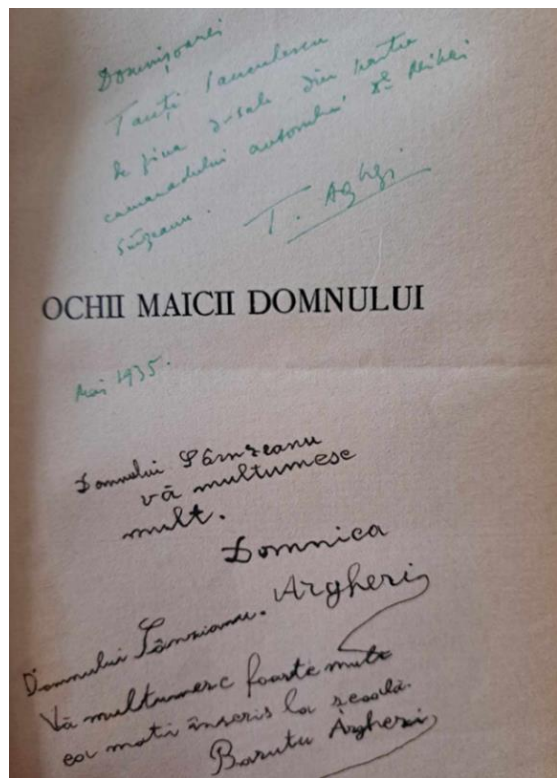 Domnișoarei
Tanți
de ziua d-sale din partea
camaradului autorului Mihai
Sânzeanu.
T. Arghezi
OCHII MAICII DOMNULUI
Mai 1935.
Domnului Sânzeanu
vă multumesc
mult.
Domnica
Arghezi
Domnului Sânzianu.
Vă multumesc foarte mult
ca mati înscris la scoală.
Barutu Arghezi